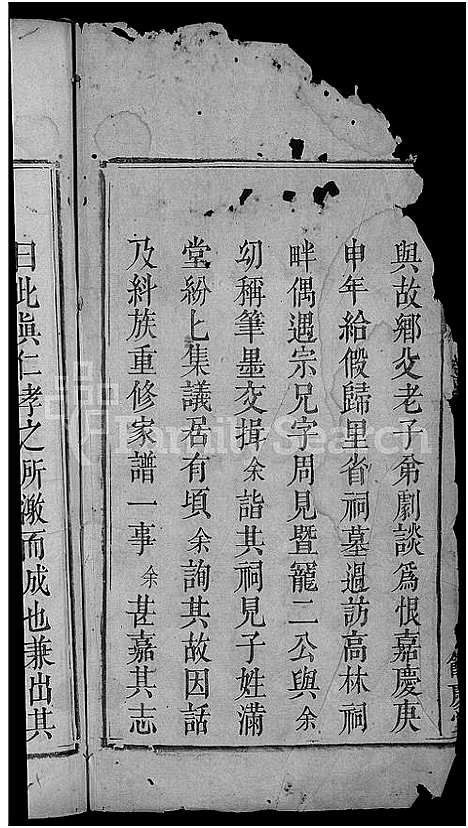 與故鄉父老子弟劇談爲恨嘉慶庚
申年給假歸里省祠墓過訪高林祠
畔偶遇宗兄字周見暨寵二公與余
幼稱筆墨交揖余詣其祠見子姓滿
堂紛匕集議居有頃余詢其故因話
及糾族重修家譜一事余甚嘉其志
曰此眞仁孝之所激而成也兼出其
FamilySearch